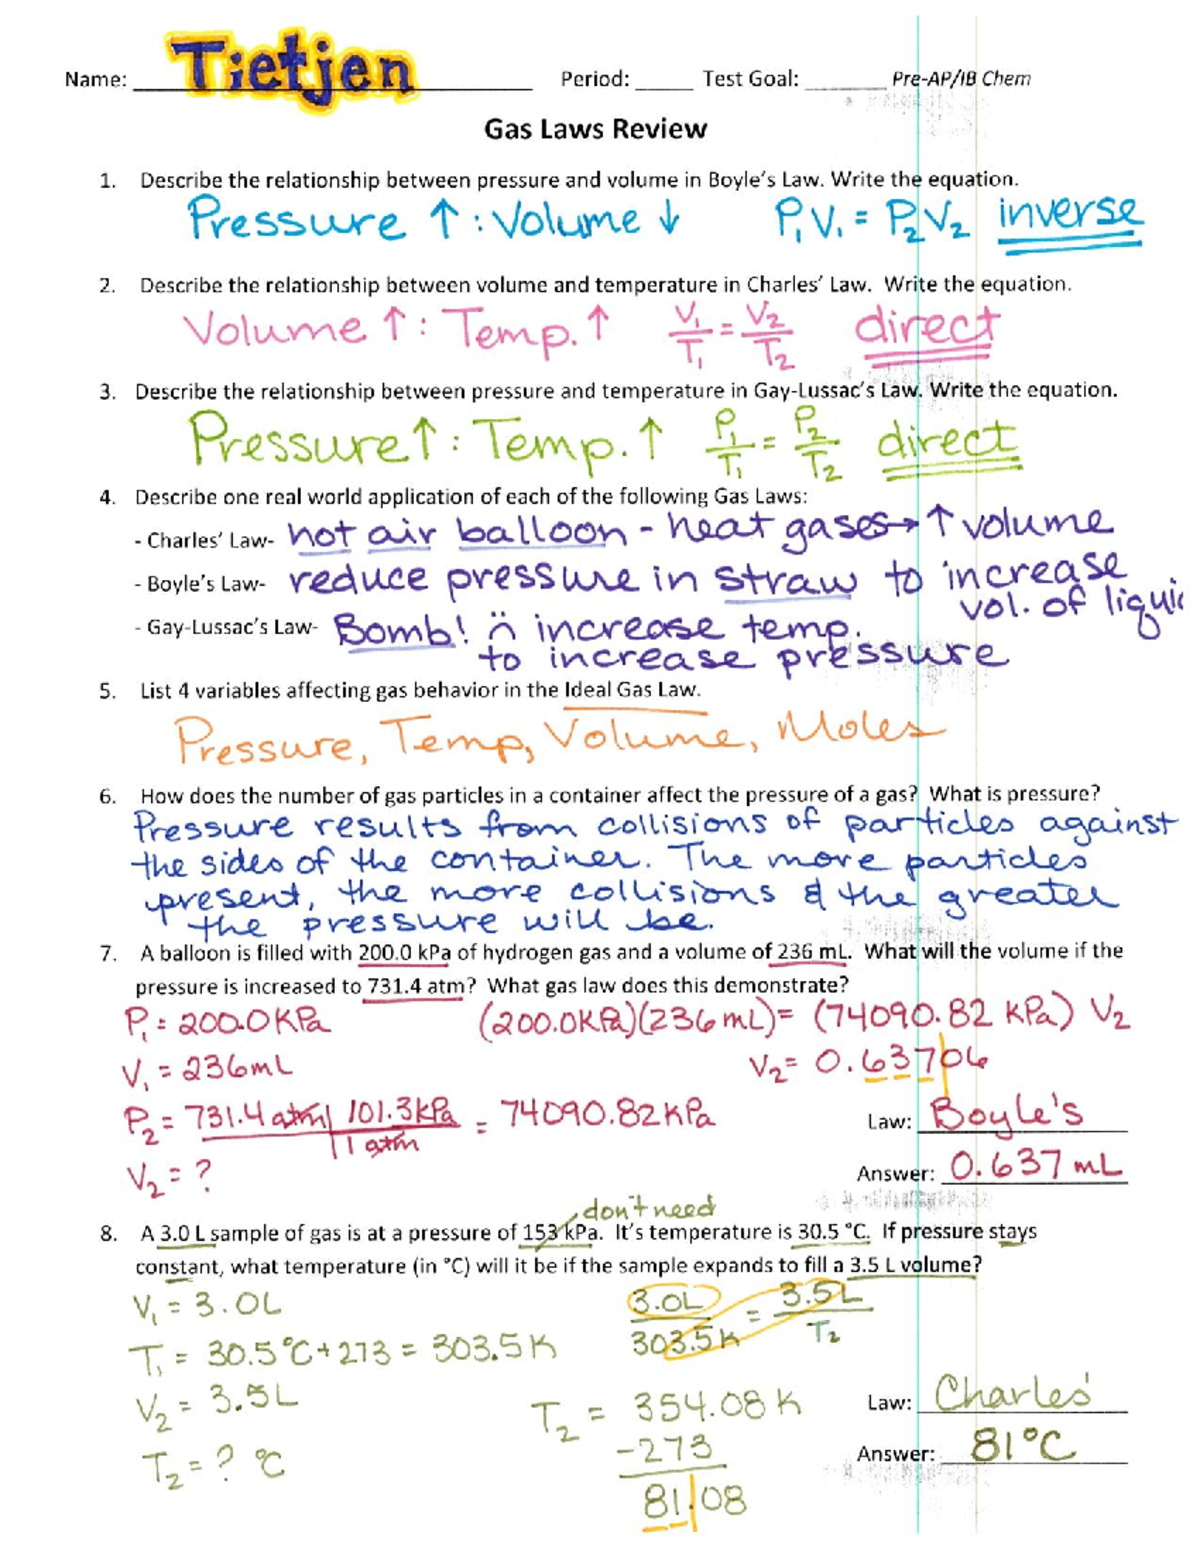 Name: Tietjen Period: _____ Test Goal: _______ Pre-AP/IB Chem
Gas Laws Review
1. Describe the relationship between pressure and volume in Boyle's Law. Write the equation.
Pressure ↑ : Volume ↓ P₁V₁ = P₂V₂ inverse
2. Describe the relationship between volume and temperature in Charles' Law. Write the equation.
Volume ↑ : Temp. ↑ V₁/T₁ = V₂/T₂ direct
3. Describe the relationship between pressure and temperature in Gay-Lussac's Law. Write the equation.
Pressure ↑ : Temp. ↑ P₁/T₁ = P₂/T₂ direct
4. Describe one real world application of each of the following Gas Laws:
- Charles' Law- hot air balloon - heat gases → ↑ volume
- Boyle's Law- reduce pressure in straw to increase
vol. of
- Gay-Lussac's Law- Bomb! increase temp.
to increase pressure
5. List 4 variables affecting gas behavior in the Ideal Gas Law.
Pressure, Temp, Volume, Moles
6. How does the number of gas particles in a container affect the pressure of a gas? What is pressure?
Pressure results from collisions of particles against
the sides of the container. The more particles
present, the more collisions & the greater
the pressure will be.
7. A balloon is filled with 200.0 kPa of hydrogen gas and a volume of 236 mL. What will the volume if the
pressure is increased to 731.4 atm? What gas law does this demonstrate?
P₁ = 200.0 KPa (200.0KPa)(236mL) = (74090.82 KPa) V₂
V₁ = 236mL V₂ = 0.63706
P₂ = 731.4 atm | 101.3 kPa / 1 atm = 74090.82 KPa Law: Boyle's
V₂ = ? Answer: 0.637 mL
don't need
8. A 3.0 L sample of gas is at a pressure of 153 kPa. It's temperature is 30.5 °C. If pressure stays
constant, what temperature (in °C) will it be if the sample expands to fill a 3.5 L volume?
V₁ = 3.0L 3.0L/303.5K = 3.5L/T₂
T₁ = 30.5°C + 273 = 303.5K
V₂ = 3.5L T₂ = 354.08 K Law: Charles'
-273
T₂ = ? °C Answer: 81°C
81.08